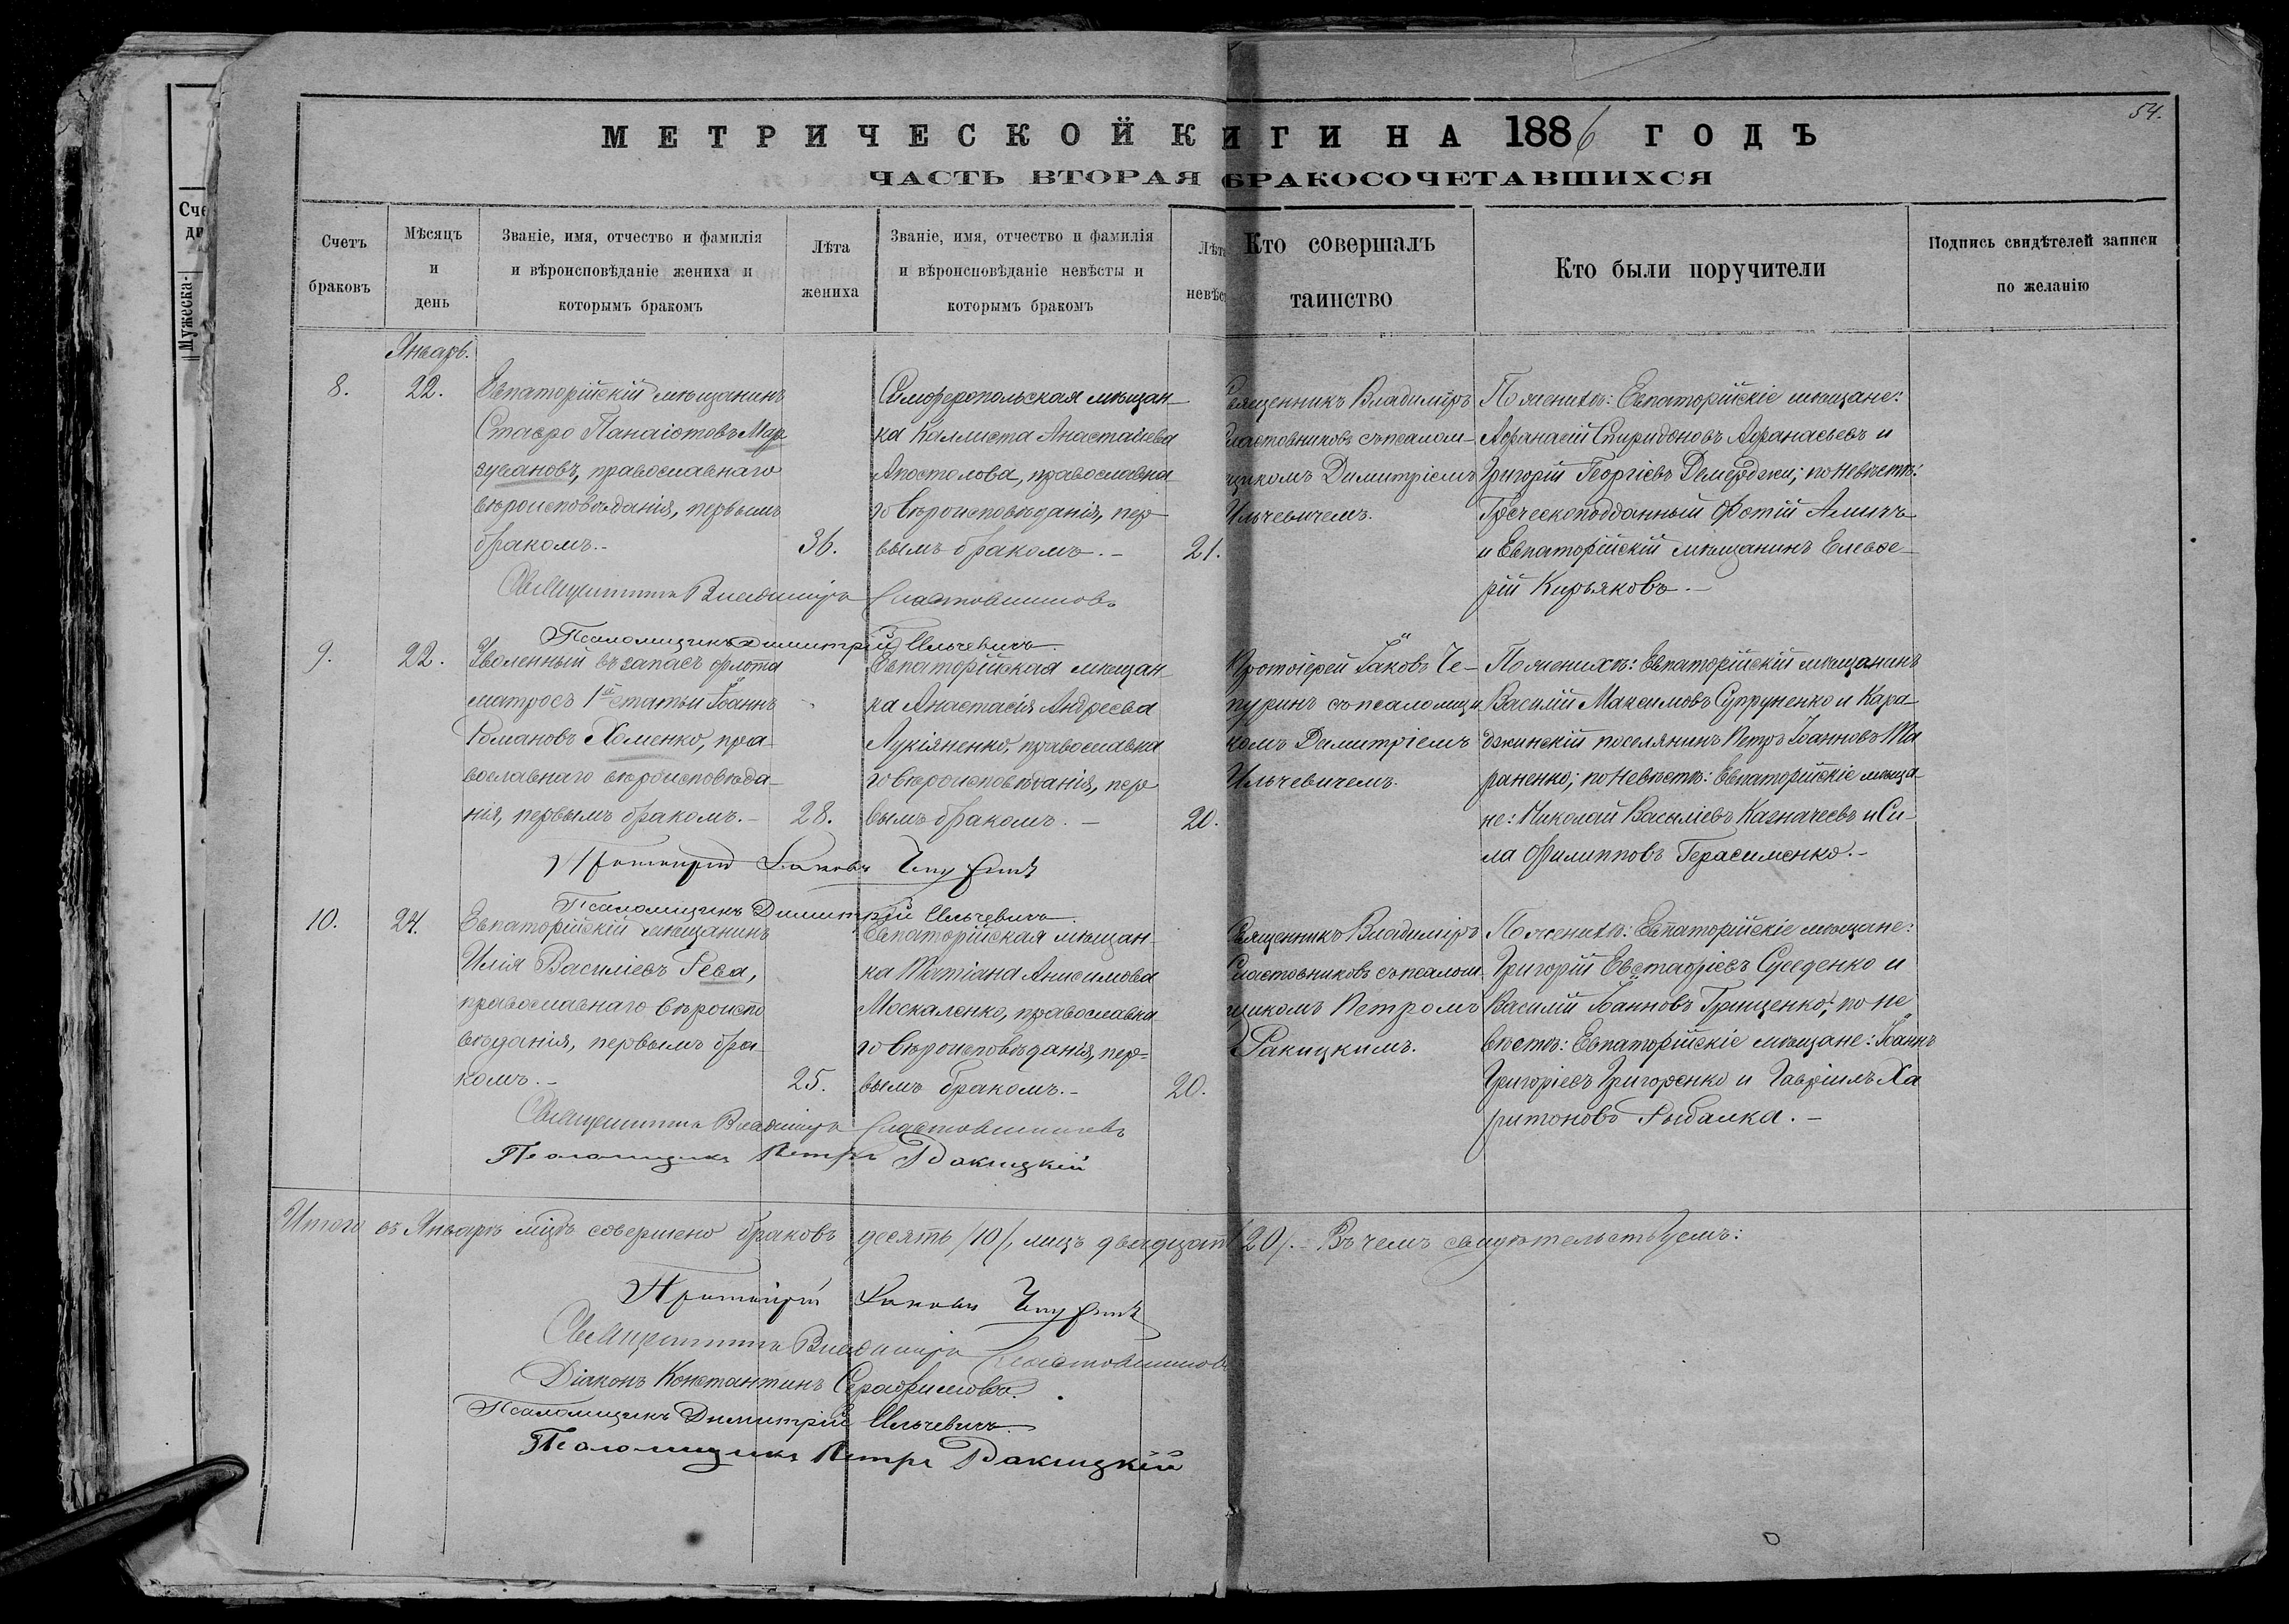 54.
МЕТРИЧЕСКОЙ КИГИ НА 1886 ГОДЪ
ЧАСТЬ ВТОРАЯ БРАКОСОЧЕТАВШИХСЯ
Счетъ
браковъ
Мѣсяцъ
и
день
Званіе, имя, отчество и фамилія
и вѣроисповѣданіе жениха и
которымъ бракомъ
Лѣта
жениха
Званіе, имя, отчество и фамилія
и вѣроисповѣданіе невѣсты и
которымъ бракомъ
Лѣта
невѣс
Кто совершалъ
таинство
Кто были поручители
Подпись свидѣтелей записи
по желанію
Мужеска-
Январь.
8.
22.
Евпаторійскій мѣщанинъ
Ставро Панаіотовъ Мар
зувановъ, православнаго
вѣроисповѣданія, первымъ
бракомъ.-
36.
Симферопольская мѣщан-
ка Каллиста Анастасіева
Апостолова, православна
го вѣроисповѣданія, пер-
вымъ бракомъ.-
21.
Священникъ Владиміръ
Сластовниковъ съ псалом-
щикомъ Димитріемъ
Ильчевичемъ.
По женихѣ: Евпаторійскіе мѣщане:
Афанасій Спиридоновъ Афанасьевъ и
Григорій Георгіевъ Демерджи; по невѣстѣ:
Греческоподданный Фотій Алингъ
и Евпаторійскій мѣщанинъ Елевѳе-
рій Кирьяковъ.-
Священникъ Владиміръ Сластовниковъ
Псаломщикъ Димитрій Ильчевичъ.
9.
22.
Уволенный въ запасъ флота
матросъ 1й статьи Іоаннъ
Романовъ Хоменко, пра-
вославнаго вѣроисповѣда-
нія, первымъ бракомъ.-
28.
Евпаторійская мѣщан-
ка Анастасія Андреева
Лукіяненко, православна
го вѣроисповѣданія, пер
вымъ бракомъ.-
20.
Протоіерей Іаковъ Че-
пуринъ съ псаломщи
комъ Димитріемъ
Ильчевичемъ.
По женихѣ: Евпаторійскій мѣщанинъ
Василій Максимовъ Супруненко и Кара-
джинскій поселянинъ Петръ Іоанновъ Та
раненко; по невѣстѣ: Евпаторійскіе мѣща-
не: Николай Васильевъ Казначеевъ и Си-
ла Филипповъ Герасименко.-
Протоіерей Іаковъ Чепуринъ
Псаломщикъ Димитрій Ильчевичъ.
10.
24.
Евпаторійскій мѣщанинъ
Илія Василіевъ Рева,
православнаго вѣроиспо
вѣданія, первымъ бра-
комъ.-
25.
Евпаторійская мѣщан-
ка Татіана Анисимова
Москаленко, православна
го вѣроисповѣданія, пер=
вымъ бракомъ.-
20.
Священникъ Владиміръ
Сластовниковъ съ псалом-
щикомъ Петромъ
Ракицкимъ.
По женихѣ: Евпаторійскіе мѣщане:
Григорій Евстафіевъ Суседенко и
Василій Іоанновъ Грищенко; по не
вѣстѣ: Евпаторійскіе мѣщане: Іоаннъ
Григоріевъ Григоренко и Гавріилъ Ха
ритоновъ Рыбалка.-
Священникъ Владиміръ Сластовниковъ
Псаломщикъ Петръ Ракицкій
Итого въ Январѣ мцѣ совершено браковъ десять /10/, лицъ двадцать /20/. Въ чемъ свидѣтельствуемъ:
Протоіерей Іаковъ Чепуринъ
Священникъ Владиміръ Сластовниковъ
Діаконъ Константинъ Серафимовъ.
Псаломщикъ Димитрій Ильчевичъ.
Псаломщикъ Петръ Ракицкій